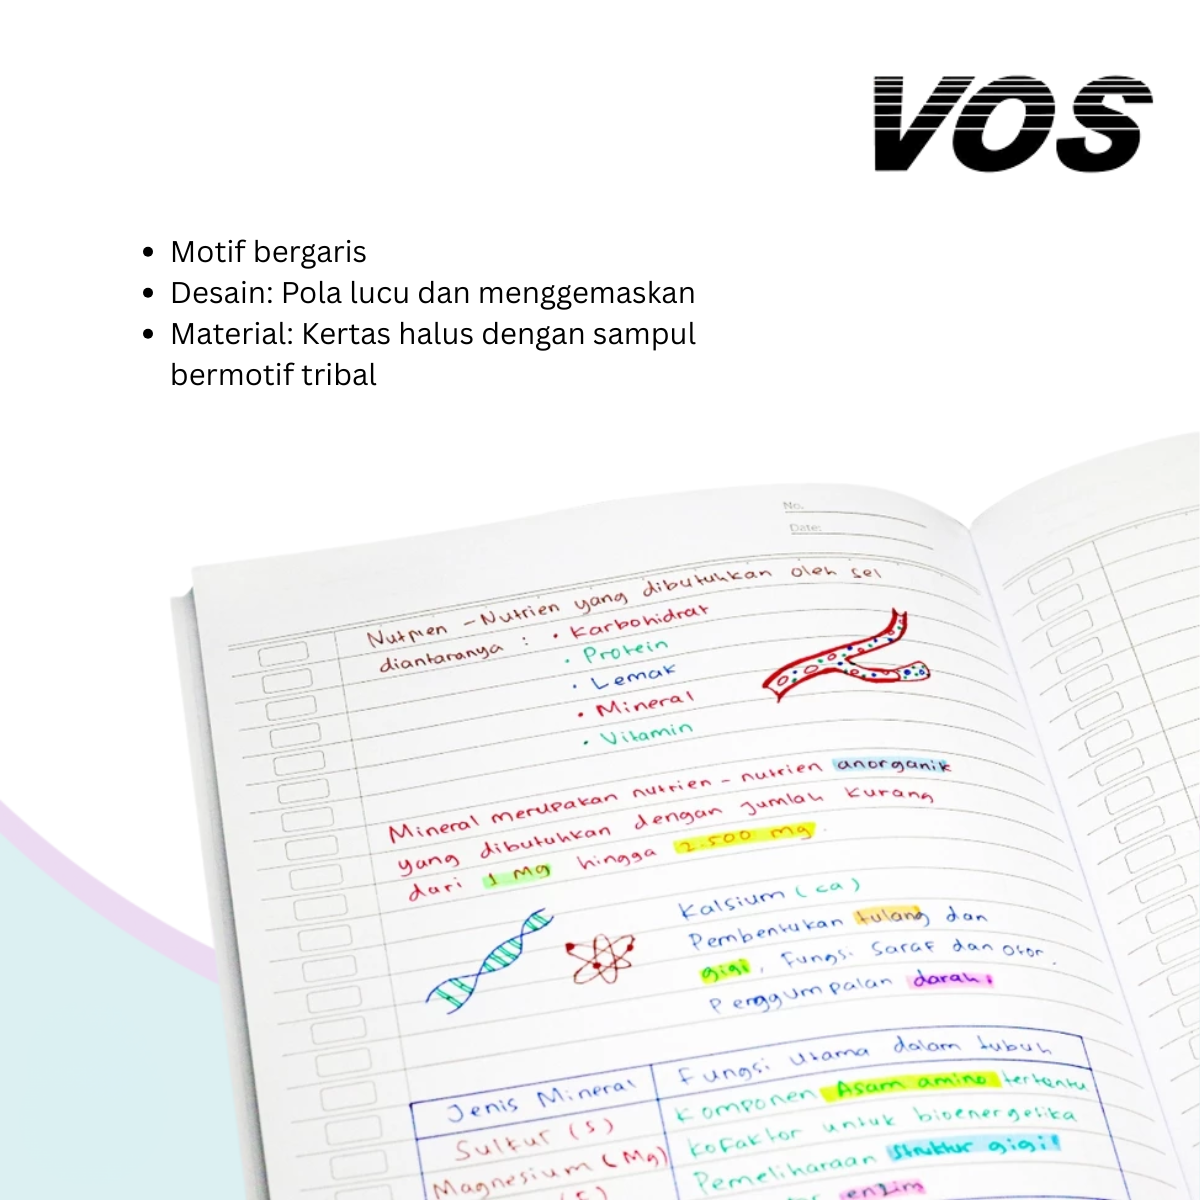 VOS
Motif bergaris
Desain: Pola lucu dan menggemaskan
Material: Kertas halus dengan sampul
bermotif tribal
No.
Date:
Nutrien - Nutrien yang dibutuhkan oleh sel
diantaranya : • Karbohidrat
• Protein
• Lemak
• Mineral
• Vitamin
Mineral merupakan nutrien - nutrien anorganik
yang dibutuhkan dengan jumlah kurang
dari 1 Mg hingga 2.500 mg.
Kalsium (ca)
Pembentukan tulang dan
gigi, Fungsi Saraf dan otor.
Penggumpalan darah
Jenis Mineral
Fungsi Utama dalam tubuh
Sulfur (S)
Komponen Asam amino tertentu
Magnesium (Mg)
kofaktor untuk bioenergetika
Pemeliharaan Struktur gigi
enzim